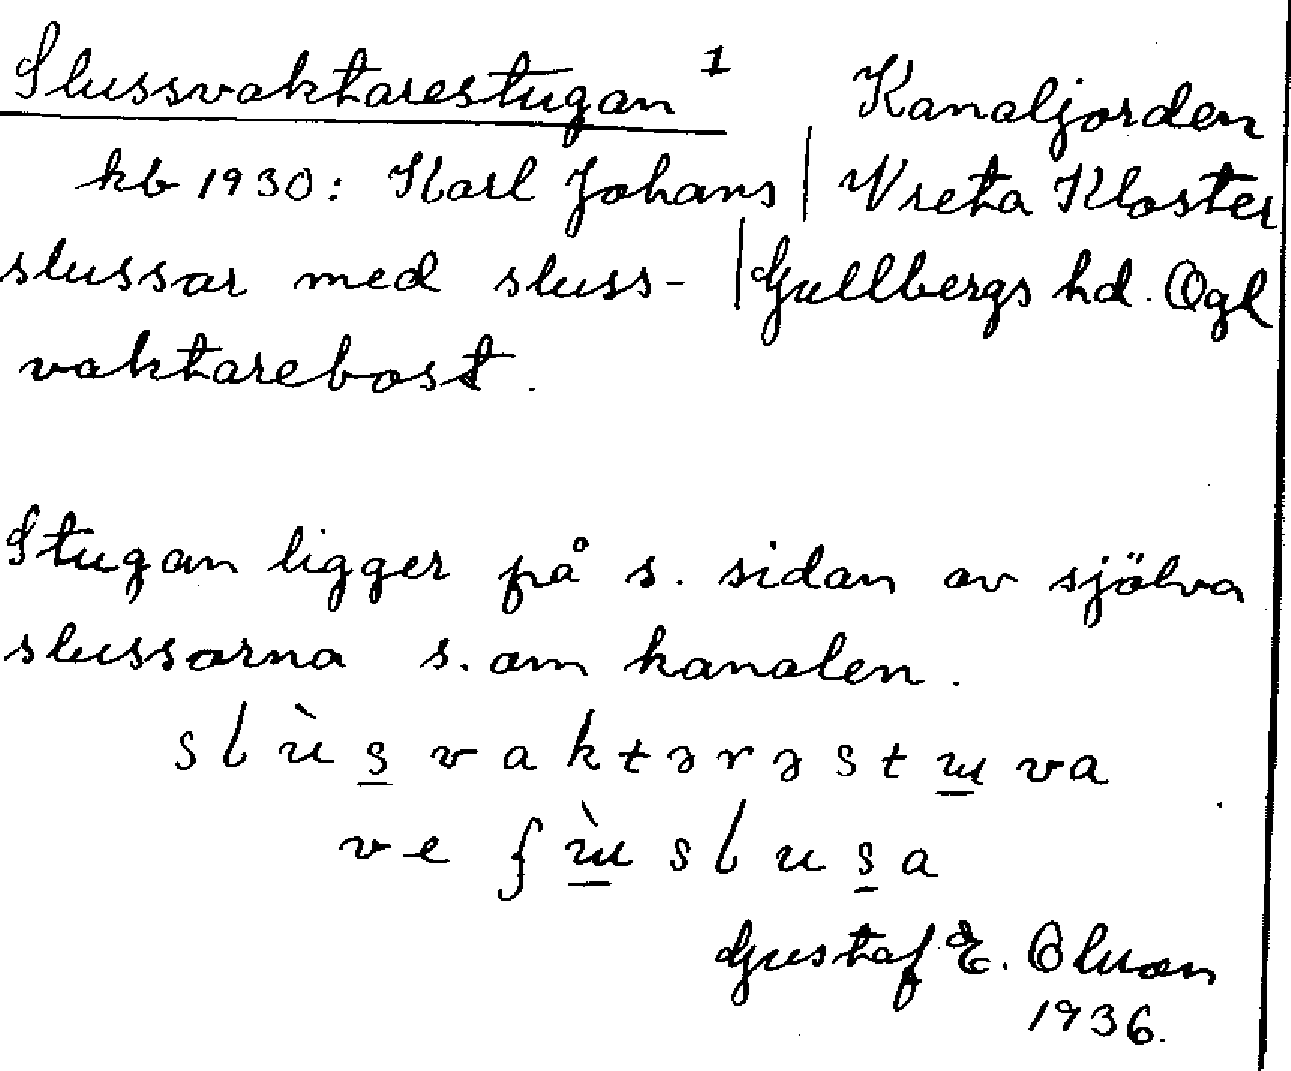 Slussvaktarestugan 1 Kanaljorden
kb 1930: Karl Johans | Vreta Kloster
slussar med sluss- | Gullbergs hd. Ögl
vaktarebost.
Stugan ligger på s. sidan av själva
slussarna s. om kanalen.
slùs̲vaktərəstɯ̲va
ve ʃɯ̲̀slus̲a
Gustaf E.
1936.